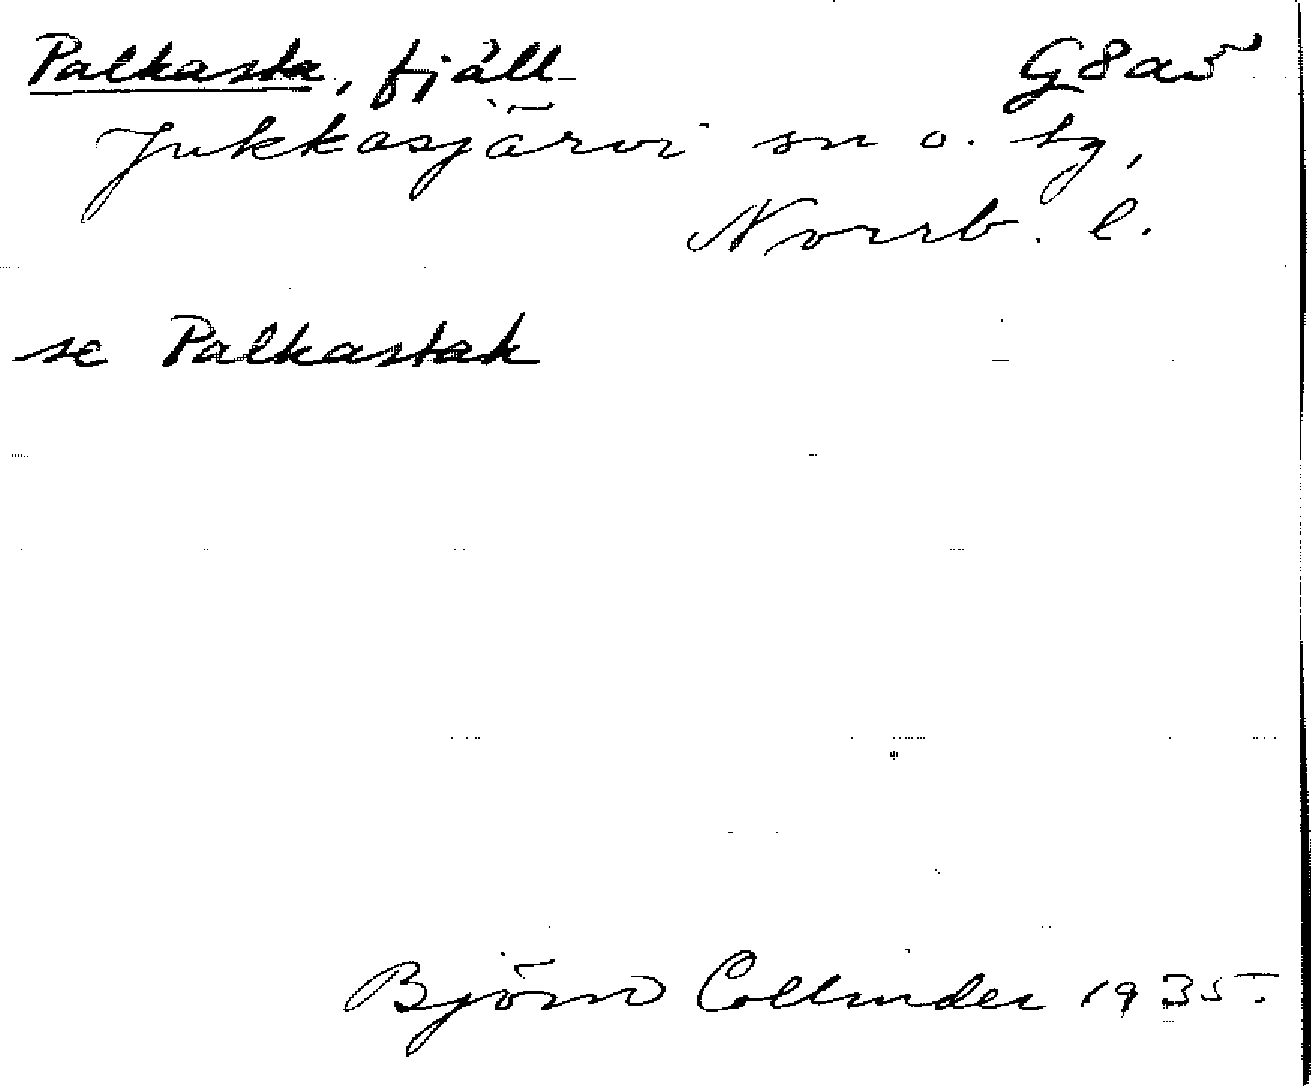 Palkasta, fjäll G8a5
Jukkasjärvi sn o. tg,
Norrb. l.
se Palkastak
Björn Collinder 1935.